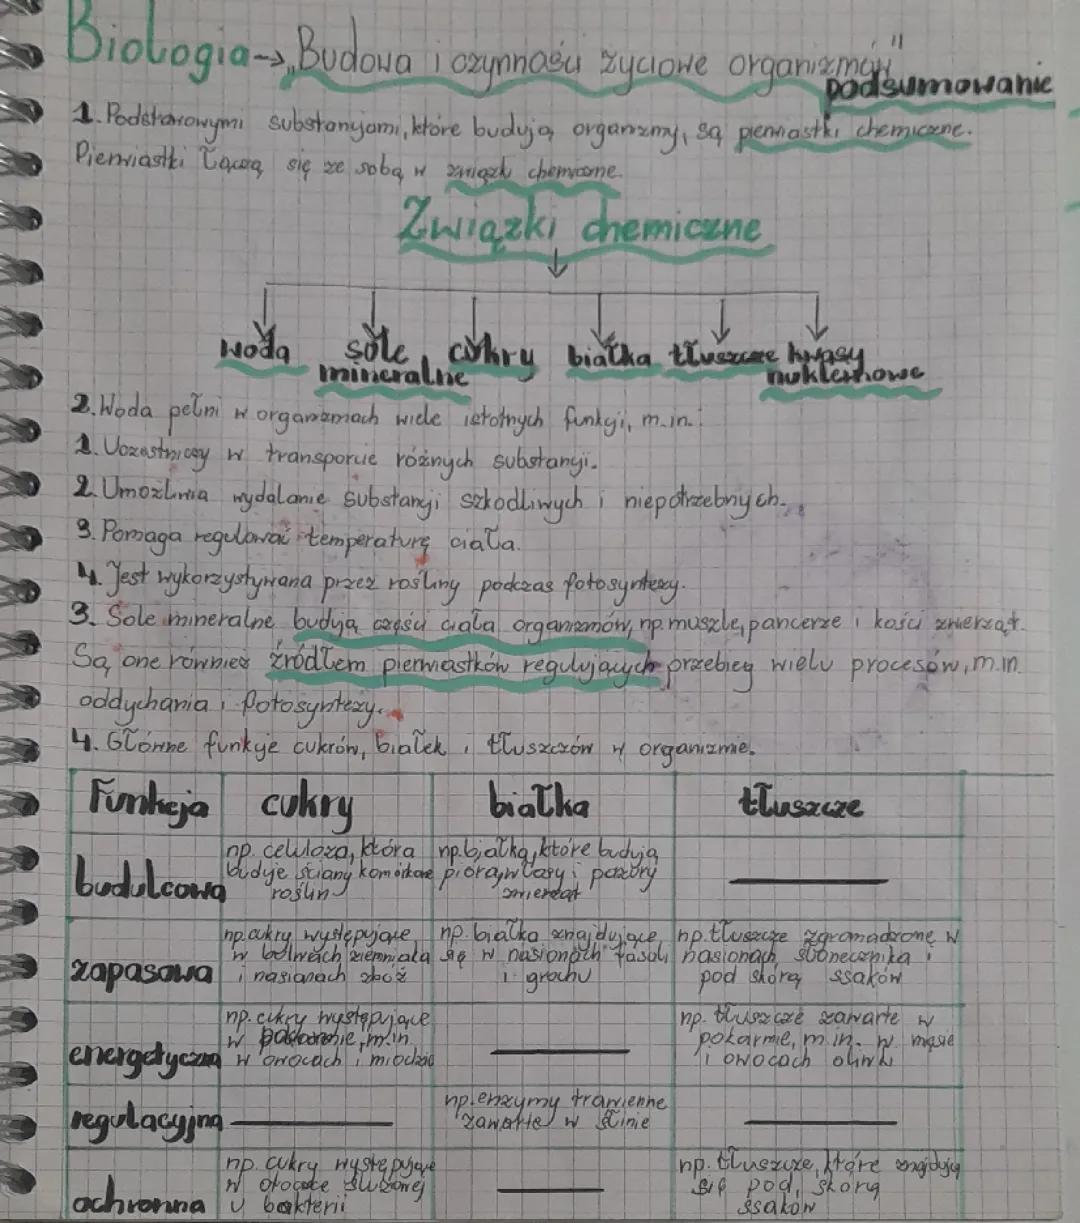 Biologia→„Budowa i czynności życiowe organizmów"
podsumowanie
1. Podstawowymi substancjami, które budują organizmy, są pierwiastki chemiczne.
Pierwiastki łączą się ze sobą w związki chemiczne.
Związki chemiczne
woda sole cukry białka tłuszcze kwasy
mineralne nukleinowe
2. Woda pełni w organizmach wiele istotnych funkcji, m.in.:
1. Uczestniczy w transporcie różnych substancji.
2. Umożliwia wydalanie substancji szkodliwych i niepotrzebnych.
3. Pomaga regulować temperaturę ciała.
4. Jest wykorzystywana przez rośliny podczas fotosyntezy.
3. Sole mineralne budują części ciała organizmów, np. muszle, pancerze i kości zwierząt.
Są one również źródłem pierwiastków regulujących przebieg wielu procesów, m.in.
oddychania i fotosyntezy.
4. Główne funkcje cukrów, białek i tłuszczów w organizmie.
Funkcja cukry białka tłuszcze
budulcowa
np. celuloza, która
buduje ściany komórkowe
roślin
np. białka, które budują
pióra, włosy i pazury
zwierząt
zapasowa
np. cukry występujące
w bulwach ziemniaka
i nasionach zbóż
np. białka znajdujące
się w nasionach fasoli
i grochu
np. tłuszcze zgromadzone w
nasionach słonecznika i
pod skórą ssaków
energetyczna
np. cukry występujące
w pokarmie, m.in.
w owocach i miodzie
np. tłuszcze zawarte w
pokarmie, m.in. w mięsie
i owocach oliwki
regulacyjna
np. enzymy trawienne
zawarte w ślinie
ochronna
np. cukry występujące
w otoczce śluzowej
u bakterii
np. tłuszcze, które znajdują
się pod skórą
ssaków